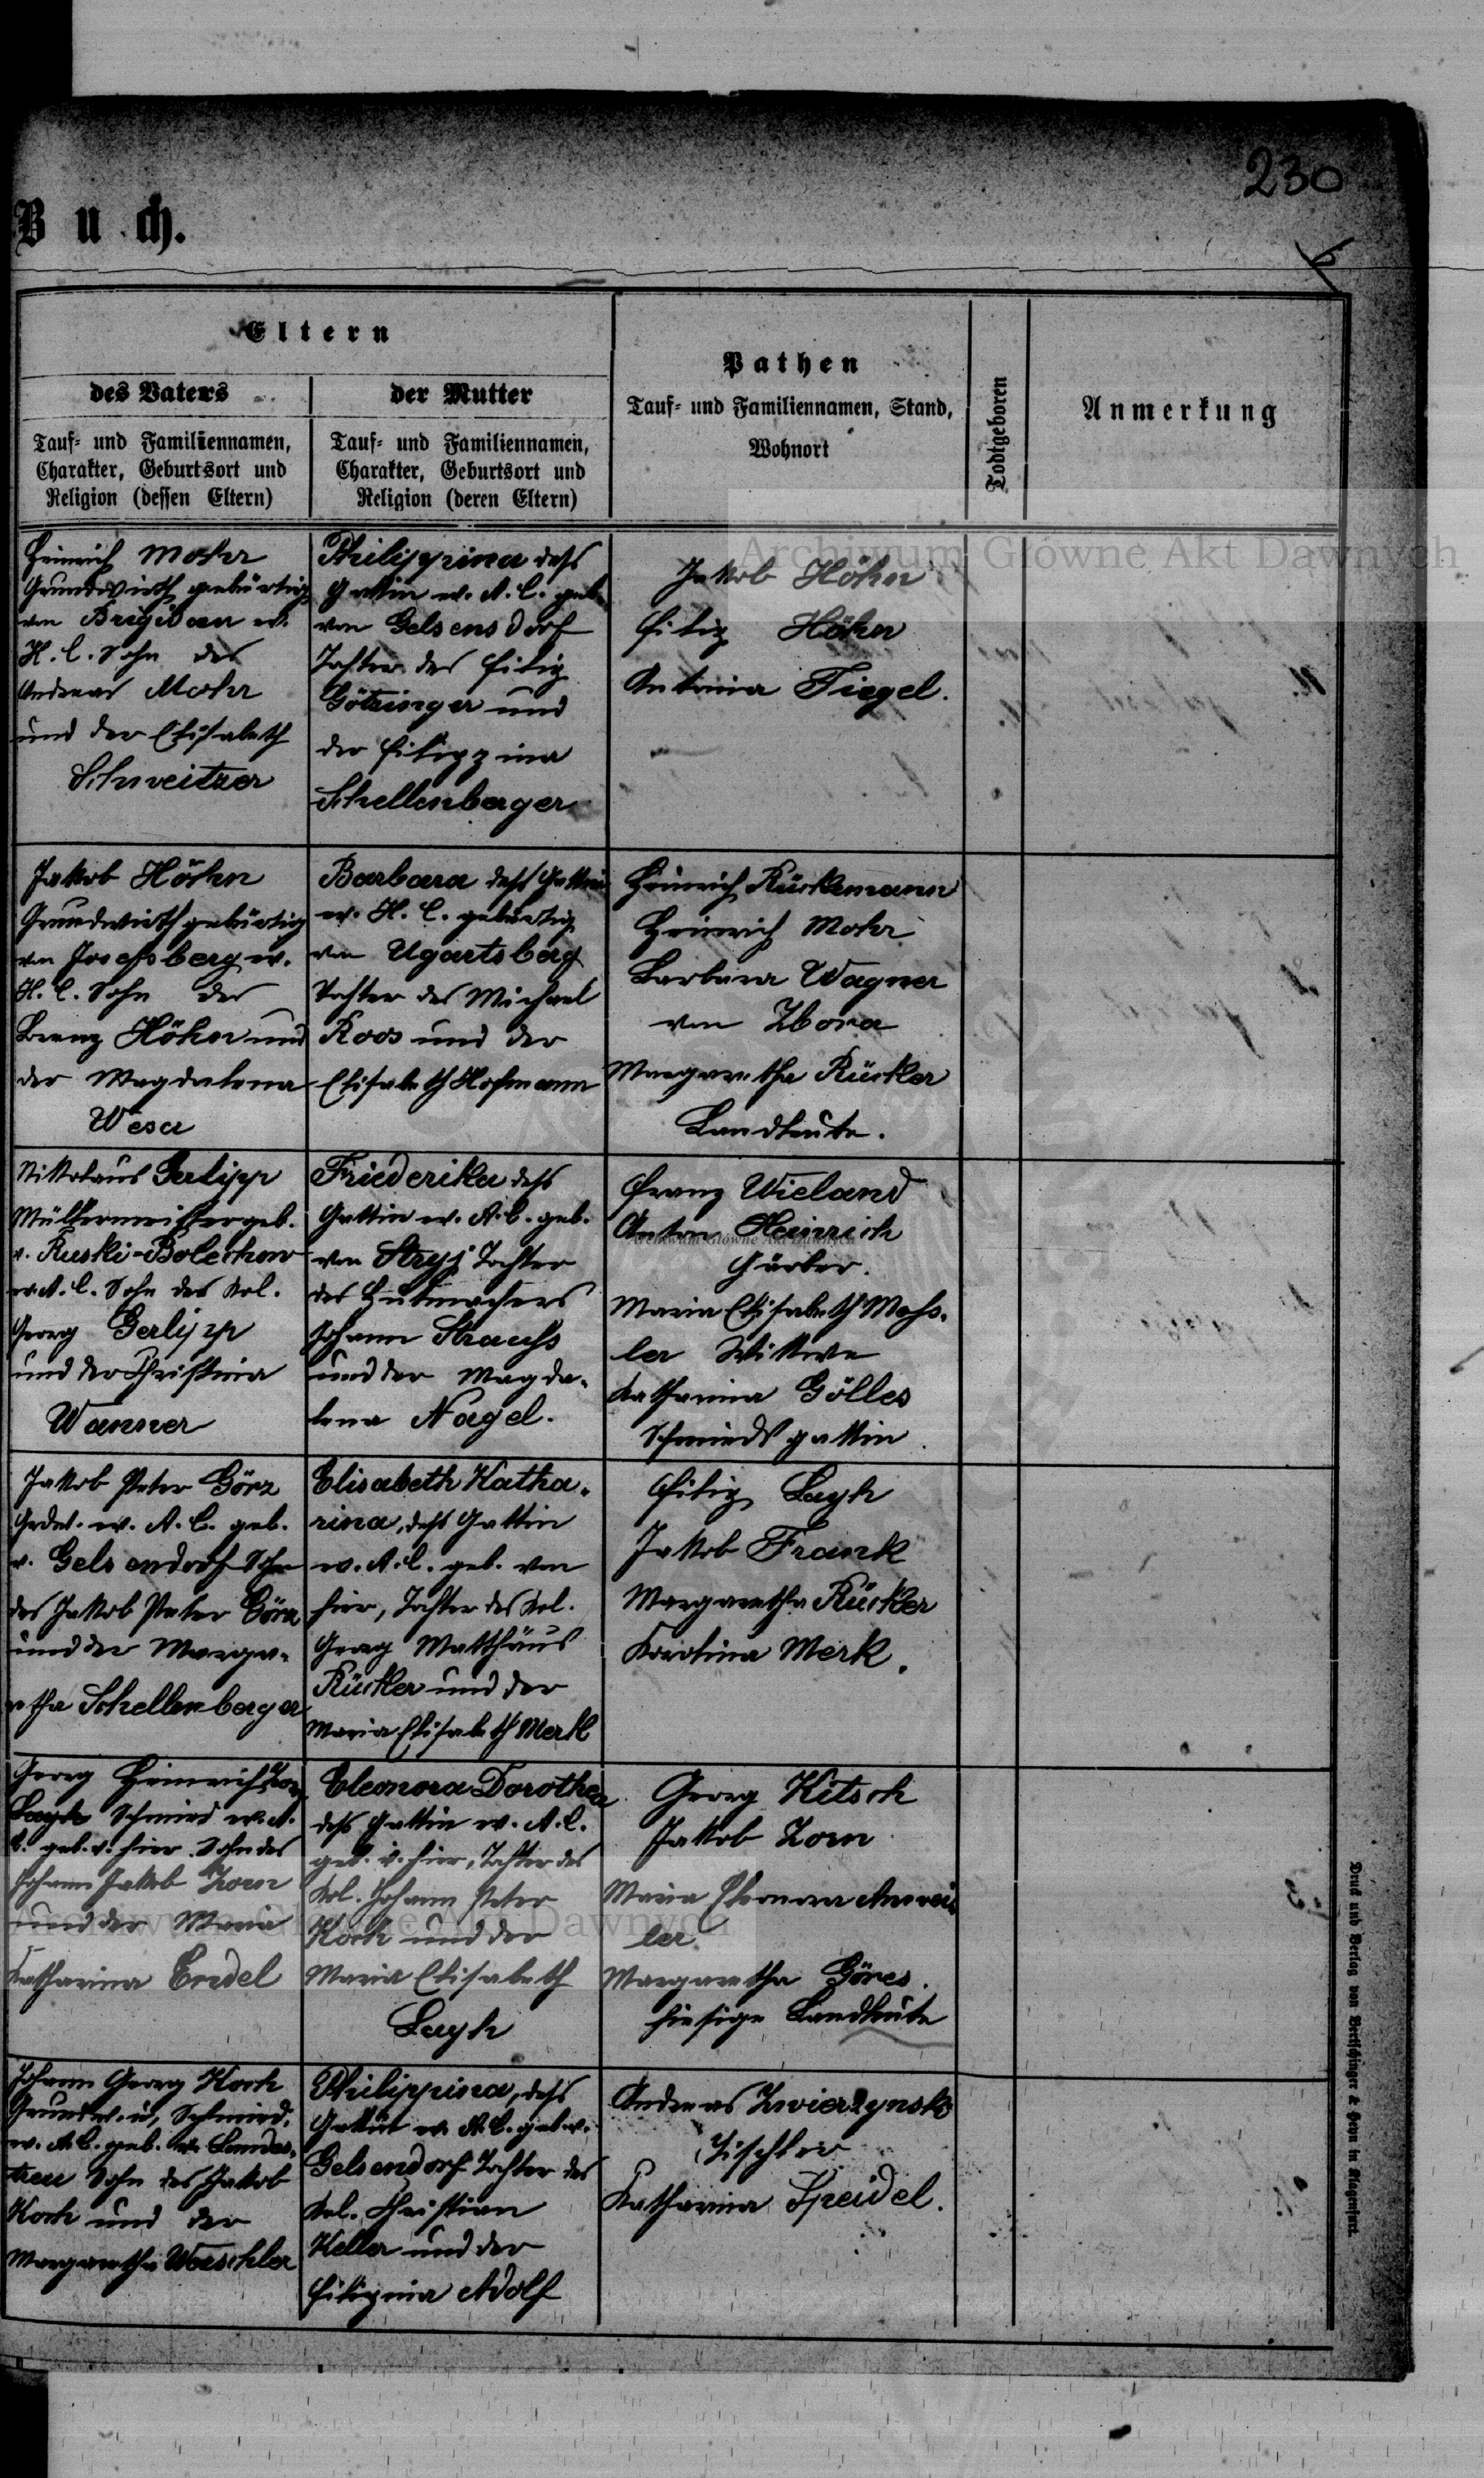 230
Buch.
Eltern
des Vaters
der Mutter
Pathen
Tauf- und Familiennamen, Stand,
Wohnort
Todtgeboren
Anmerkung
Tauf- und Familiennamen,
Charakter, Geburtsort und
Religion (dessen Eltern)
Tauf- und Familiennamen,
Charakter, Geburtsort und
Religion (deren Eltern)
Archiwum Główne Akt Dawnych
Heinrich Mohr
Grundwirth gebürtig
von Brigidau ev.
H. C. Sohn des
Andreas Mohr
und der Elisabeth
Schweitzer
Philippina dess
Gattin ev. A. C. geb.
von Gelsensdorf
Tochter des Filip
Götzinger und
der Filippina
Schellenberger
Jakob Höhn
Filip Höhn
Antonia Tiegel.
Jakob Höhn
Grundwirth gebürtig
von Josefsberg ev.
H. C. Sohn des
Höhn und
der Magdalena
Wesa
Barbara dess Gattin
ev. H. C. gebürtig
von Ugartsberg
Tochter des Michael
Roos und der
Elisabeth Hofmann
Heinrich Rückemann
Heinrich Mohr
Barbara Wagner
von Zbora
Margaretha Rückler
Landleute.
Nikolaus Gerlipp
Müllermeister geb.
v. Ruski-Bolechow
ev. A. C. Sohn des Kol.
Georg Gerlipp
und der Christina
Wanner
Friederika dess
Gattin ev. A. C. geb.
von Stryj Tochter
des Hutmachers
Johann Strauss
und der Magda-
lena Nagel.
Franz Wieland
Anton Heinrich
Färber.
Maria Elisabeth Mess-
ler Wittwe
Katharina Gölles
Schmiedsgattin
Jakob Peter Görz
Grdw. ev. A. C. geb.
v. Gelsendorf Sohn
des Jakob Peter Görz
und der Marga-
retha Schellenberger
Elisabeth Katha-
rina, dess Gattin
ev. A. C. geb. von
hier, Tochter des Kol.
Georg Matthäus
Rückler und der
Maria Elisabeth Merk
Filip Layh
Jakob Frank
Margaretha Rückler
Karolina Merk.
Georg Heinrich Zorn
Layh Schmied ev. A.
C. geb. v. hier Sohn des
Johann Jakob Zorn
und der Maria
Katharina Endel
Eleonora Dorothea
dess Gattin ev. A. C.
geb. v. hier, Tochter des
Kol. Johann Peter
Koch und der
Maria Elisabeth
Layh
Georg Kitsch
Jakob Zorn
Maria Eleonora Anwei-
ler
Margaretha Göres.
hiesige Landleute
Archiwum Główne Akt Dawnych
Johann Georg Koch
Grundw. u. Schmied.
ev. A. C. geb. v. Landes-
treu Sohn des Jakob
Koch und der
Margaretha Weschler
Philippina, dess
Gattin ev. A. C. geb. v.
Gelsendorf Tochter des
Kol. Christian
Keller und der
Filippina Adolf
Andreas Zwierzynski
Tischler
Katharina Speidel.
Druck und Verlag von Bertschinger & Heyn in Klagenfurt.